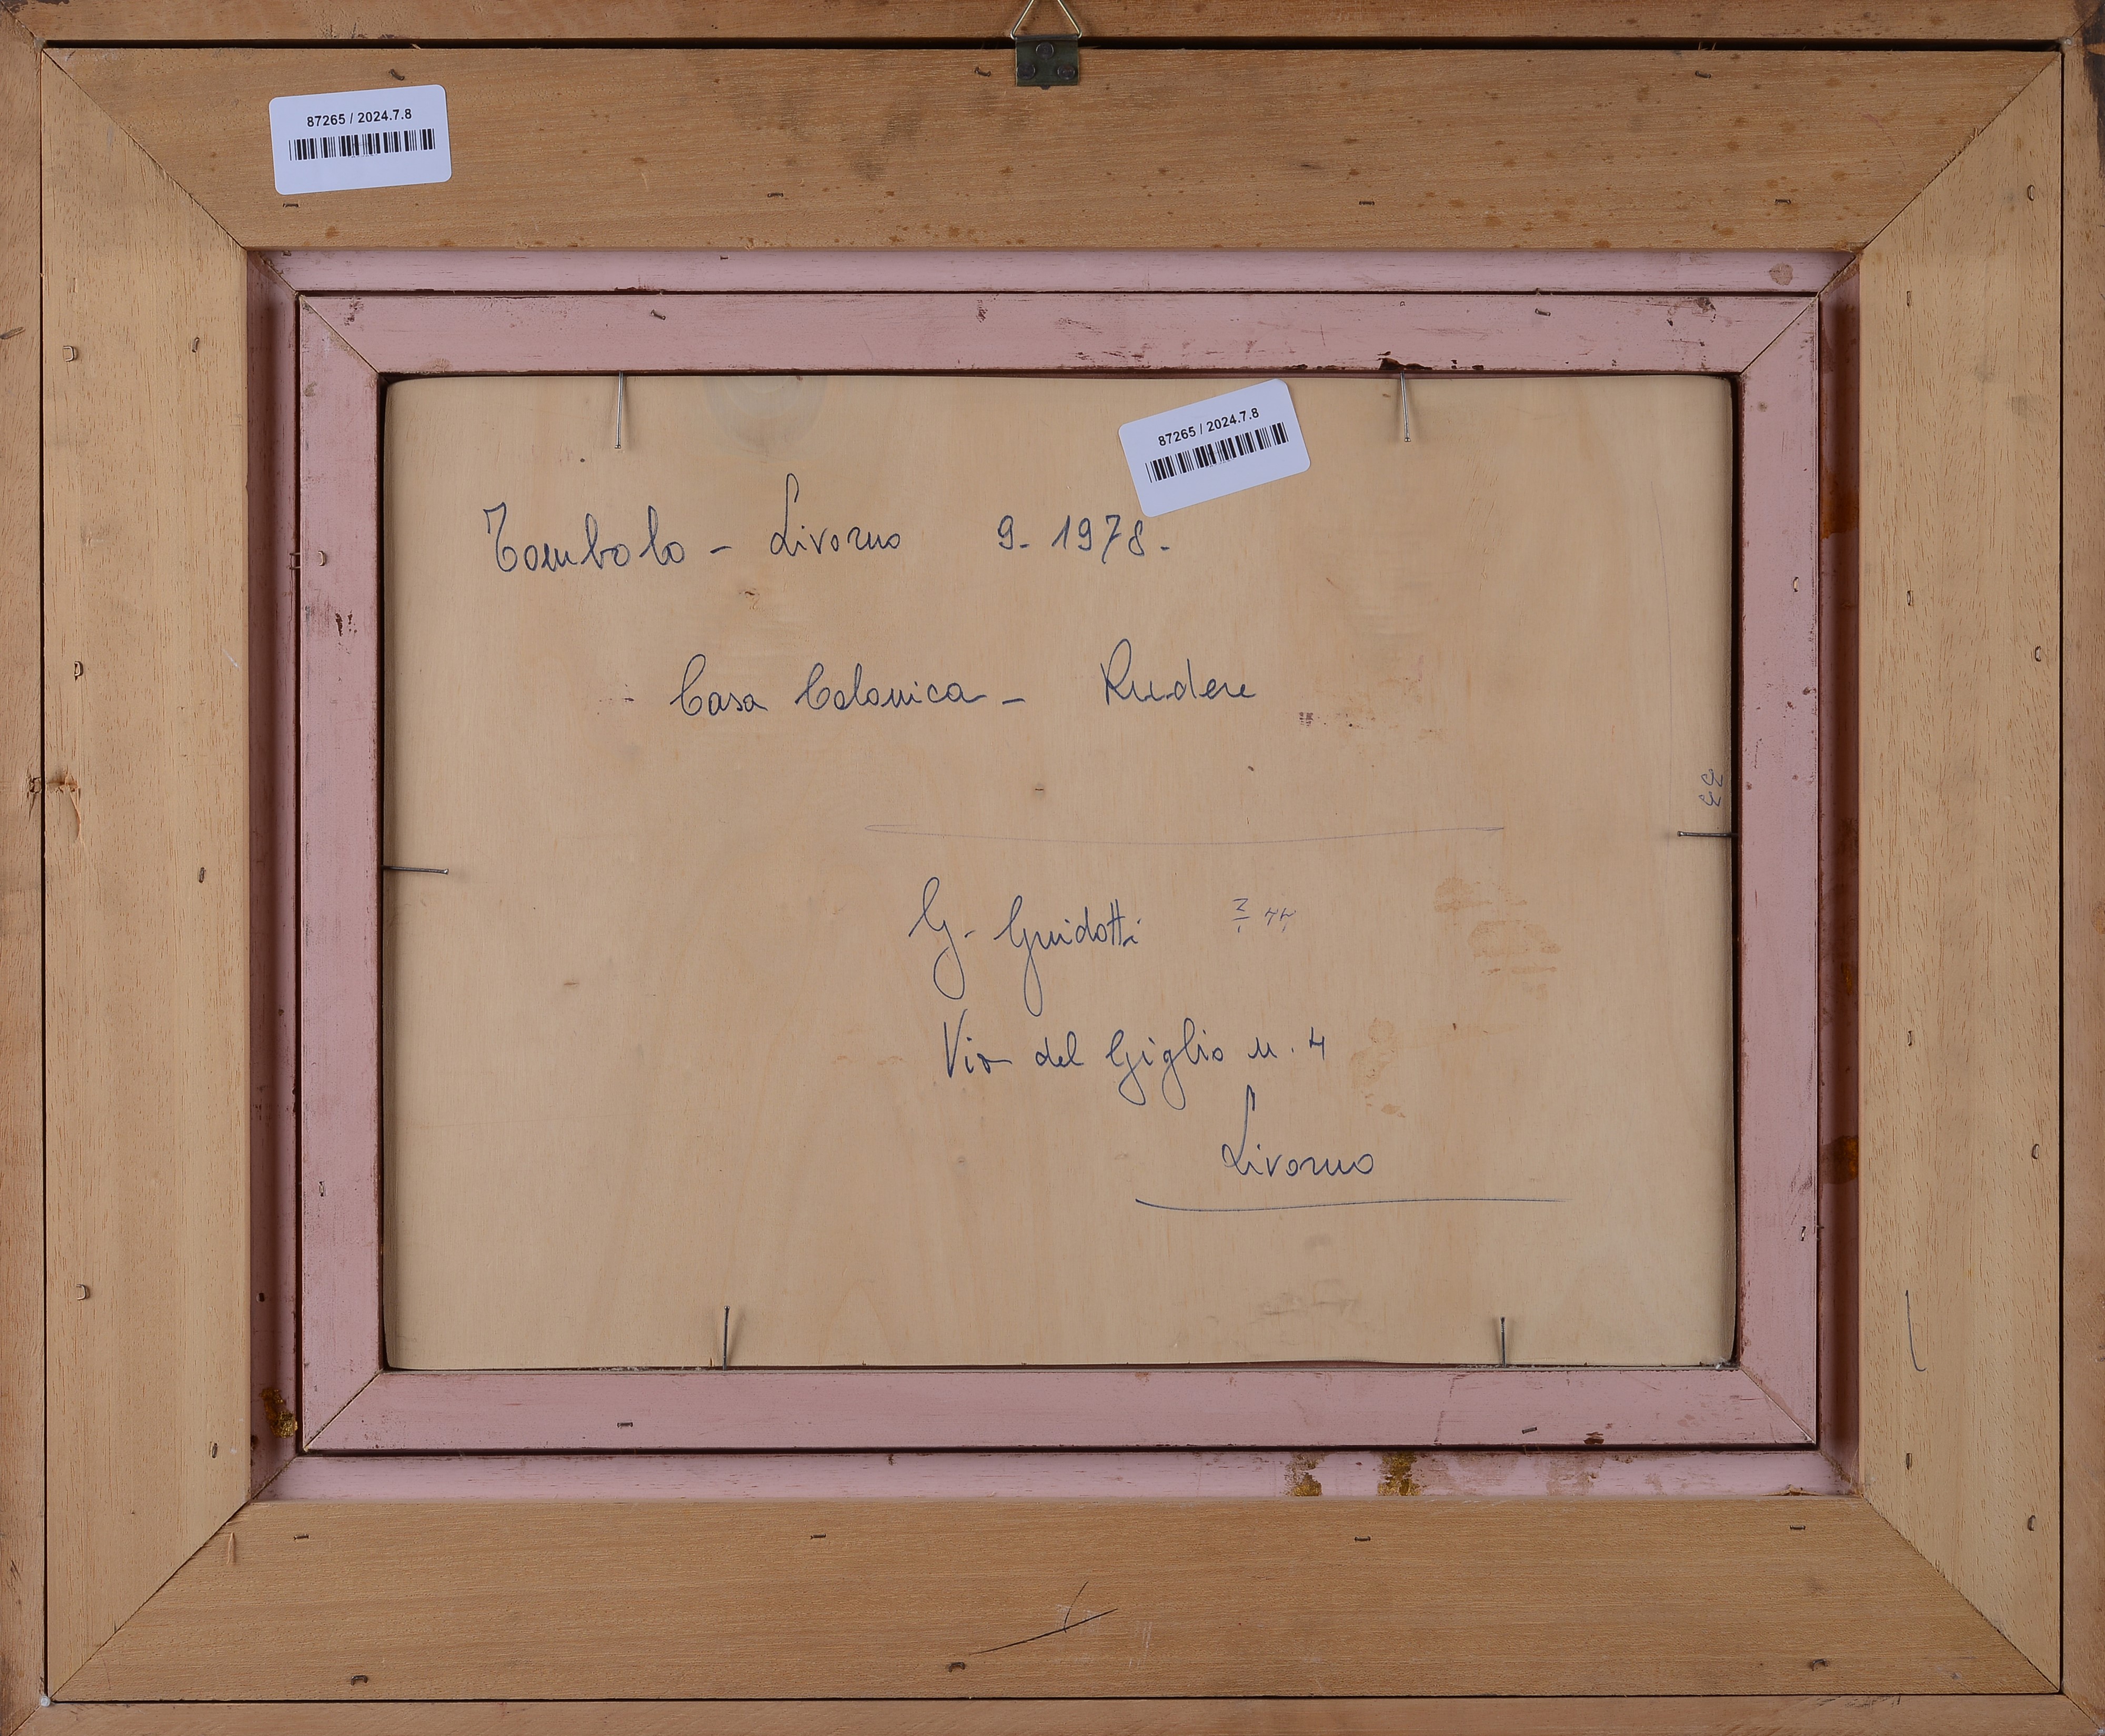 87265 / 2024.7.8
87265 / 2024.7.8
Tombolo - Livorno 9-1978.
Casa Colonica - Rudere
G. Guidotti
Via del Giglio n. 4
Livorno